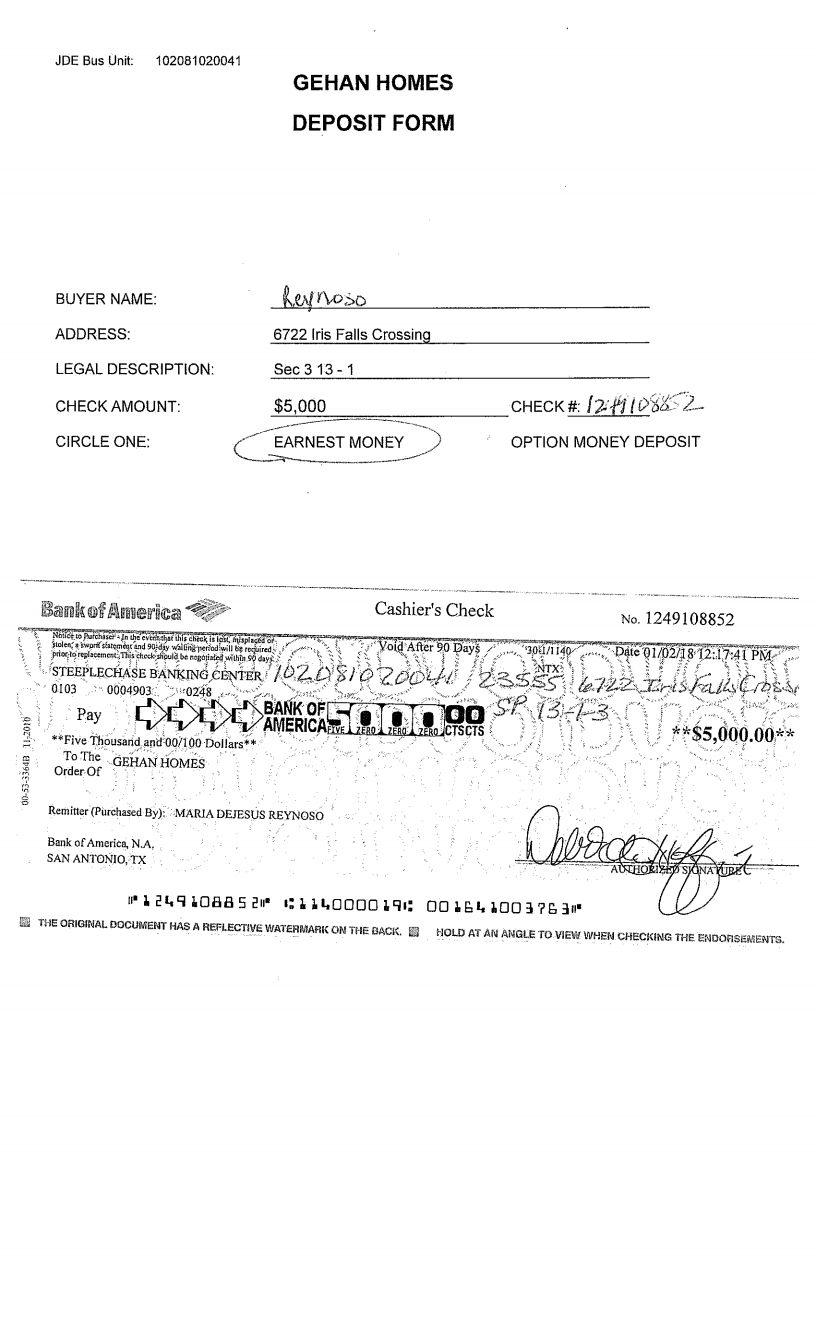 JDE Bus Unit: 102081020041
GEHAN HOMES
DEPOSIT FORM
BUYER NAME: Reynoso
ADDRESS: 6722 Iris Falls Crossing
LEGAL DESCRIPTION: Sec 3 13 - 1
CHECK AMOUNT: $5,000 CHECK #: 1249108852
CIRCLE ONE: EARNEST MONEY OPTION MONEY DEPOSIT
Bank of America Cashier's Check No. 1249108852
Notice to Purchaser - In the event that this check is lost, misplaced or
stolen, a sworn statement and 90-day waiting period will be required
prior to replacement. This check should be negotiated within 90 days.
Void After 90 Days 30-1/1140 Date 01/02/18 12:17:41 PM
NTX
STEEPLECHASE BANKING CENTER 102081020041 23555 6722 Iris Falls Cross
0103 0004903 0248
SP 13-1-3
Pay BANK OF AMERICA 5000 00
FIVE ZERO ZERO ZERO CTS CTS
**$5,000.00**
**Five Thousand and 00/100 Dollars**
To The Order Of GEHAN HOMES
Remitter (Purchased By): MARIA DEJESUS REYNOSO
Bank of America, N.A.
SAN ANTONIO, TX
AUTHORIZED SIGNATURE
00-53-3364B 11-2010
⑈1249108852⑈ ⑆114000019⑆ 001641003763⑈
THE ORIGINAL DOCUMENT HAS A REFLECTIVE WATERMARK ON THE BACK. HOLD AT AN ANGLE TO VIEW WHEN CHECKING THE ENDORSEMENTS.